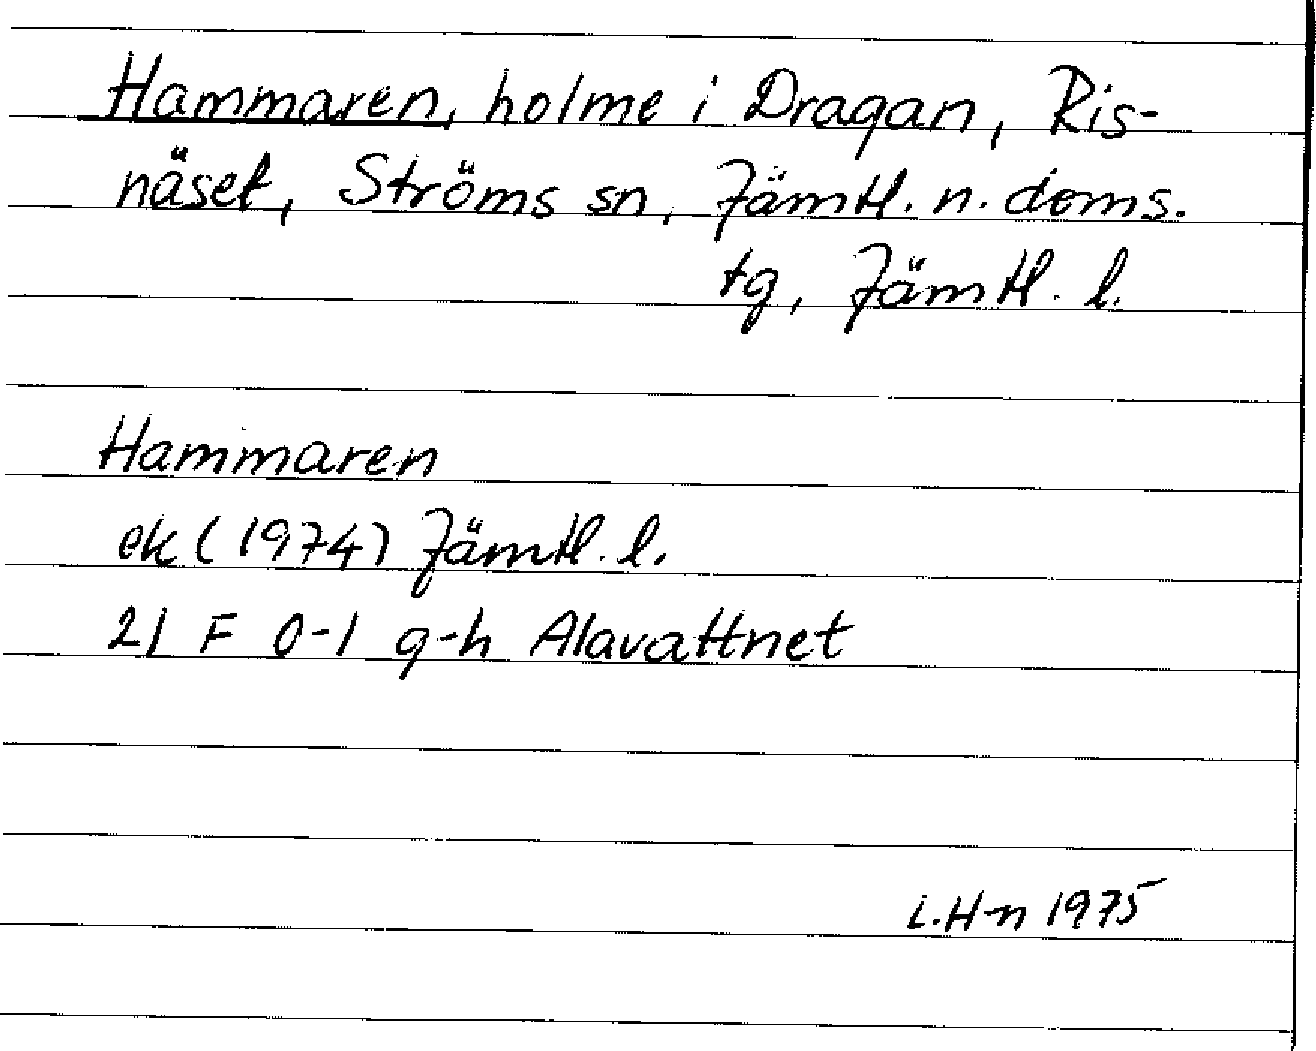 Hammaren, holme i Dragan, Ris-
näset, Ströms sn, Jämtl. n. doms.
tg, Jämtl. l.
Hammaren
ek (1974) Jämtl. l.
21 F 0-1 g-h Alavattnet
L.H-n 1975